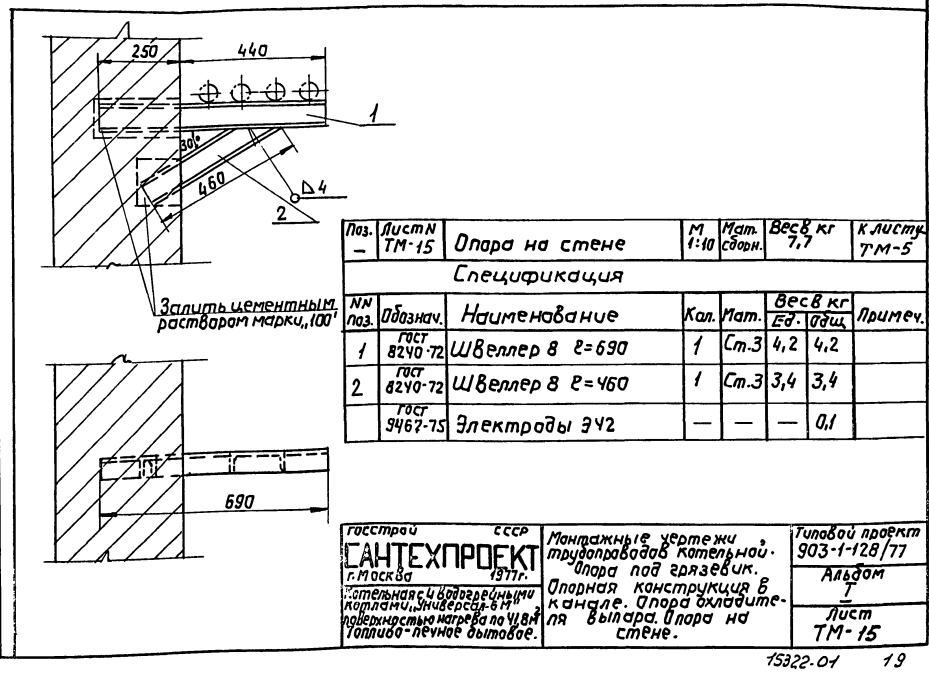 250 440
1
30°
460
4
2
Залить цементным
раствором марки „100"
690
Поз. Лист N Опора на стене М Мат. Вес в кг к листу
— ТМ-15 1:10 сборн. 7,7 ТМ-5
Спецификация
NN поз. Обознач. Наименование Кол. Мат. Вес в кг Примеч.
Ед. Общ
1 ГОСТ 8240-72 Швеллер 8 ℓ=690 1 Ст.3 4,2 4,2
2 ГОСТ 8240-72 Швеллер 8 ℓ=460 1 Ст.3 3,4 3,4
ГОСТ 9467-75 Электроды Э42 — — — 0,1
госстрой СССР
САНТЕХПРОЕКТ
г. Москва 1977г.
Котельная с 4 водогрейными
котлами „Универсал-6М"
поверхностью нагрева по 41,8м²
Топливо-печное бытовое.
Монтажные чертежи
трубопроводов котельной.
Опора под грязевик.
Опорная конструкция в
канале. Опора охладите-
ля выпара. Опора на
стене.
Типовой проект
903-1-128/77
Альбом
I
Лист
ТМ-15
15322-01 19